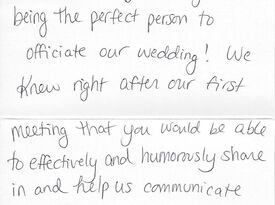 being the perfect person to
officiate our wedding! We
knew right after our first
meeting that you would be able
to effectively and humorously share
in and help us communicate